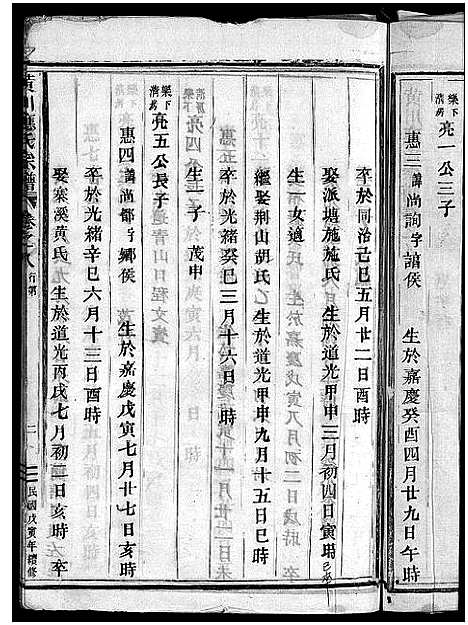 樂下清房亮一公三子
惠三諱尚詢字諮侯 生於嘉慶癸酉四月廿九日午時
卒於同治己巳五月廿二日酉時
娶派塘施施氏 生於道光甲申三月初四日寅時
生一女適
繼娶荆山胡氏 生於道光甲申九月十五日巳時
卒於光緒癸巳三月十六日
生一子 茂申
樂下清房亮五公長子
惠四諱尚都字鄉侯 生於嘉慶戊寅七月廿七日亥時
卒於光緒辛巳六月十三日酉時
娶寨溪黃氏 生於道光丙戌七月初二日亥時 卒
黃川應氏宗譜 卷之八 行第 二 民國戊寅年續修